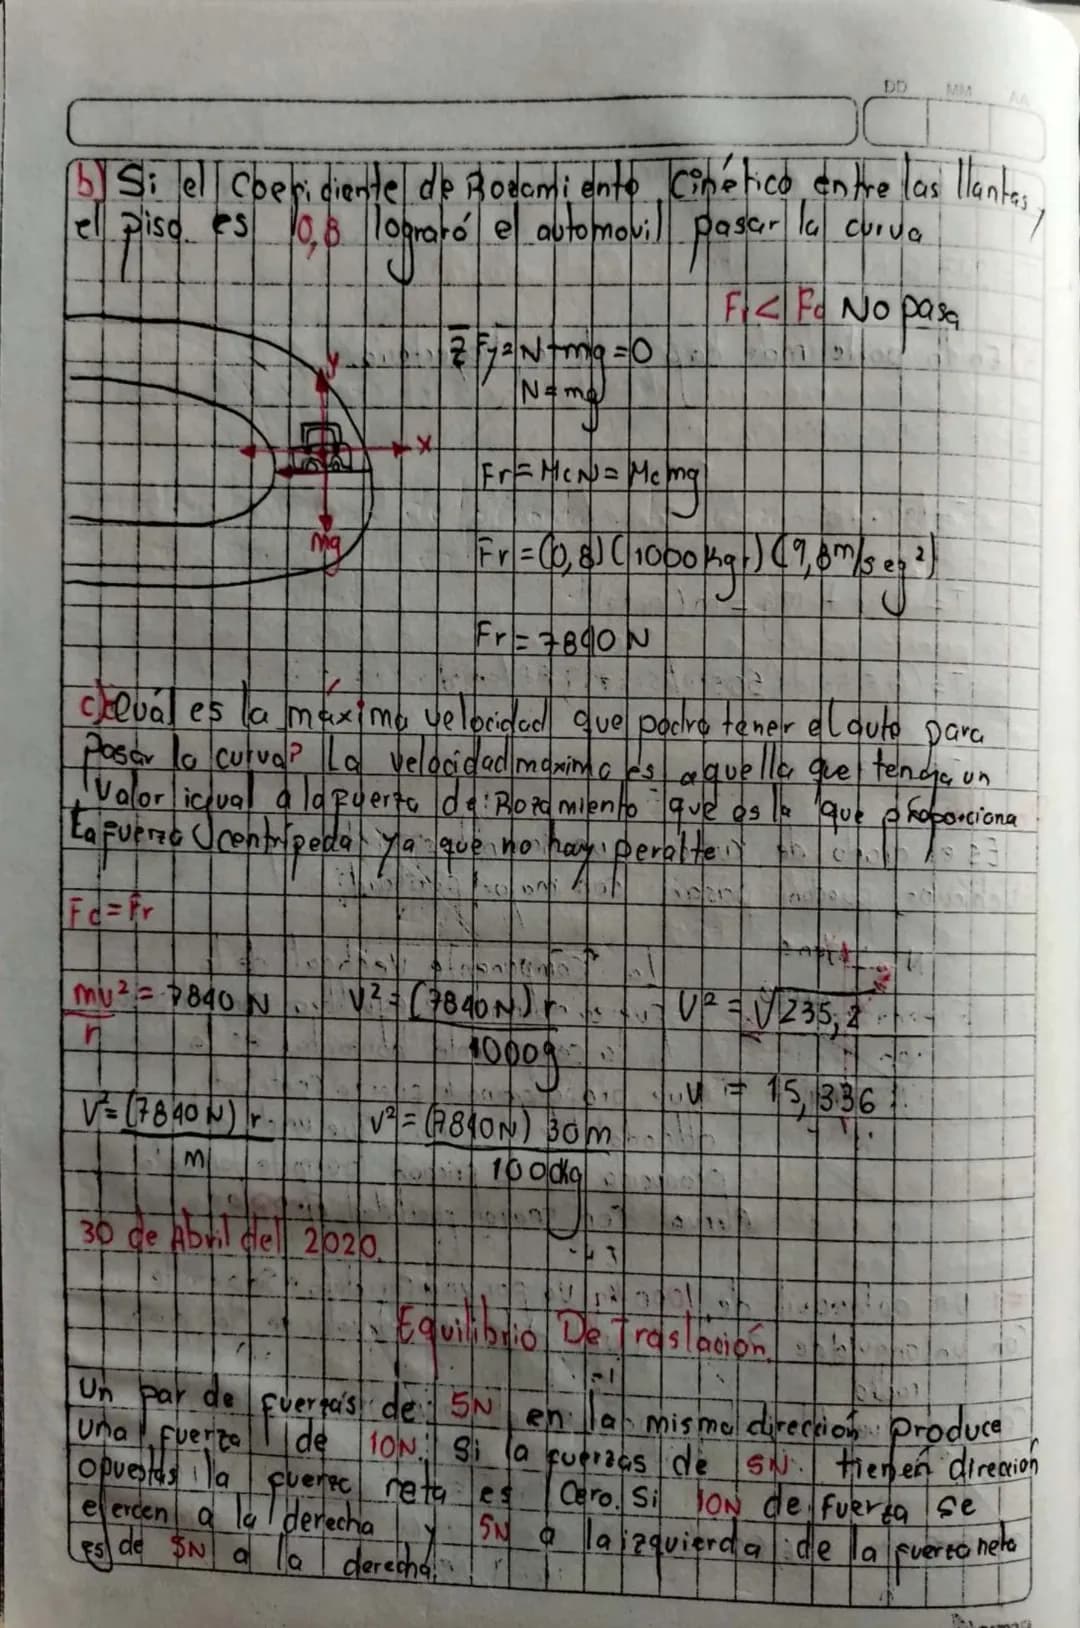 DD MM AA
b) Si el Coefidiente de Rodamiento Cinético entre las llantas y
el piso es 0,8 lograró el automovil pasar la curva
Fr < Fc No pasa
Σ Fy = N + mg = 0
y
N = mg
x
Fr = McN = Mcmg
mg
Fr = (0,8) (1000 kgr) (9,8 m/seg²)
Fr = 7840 N
c) Cuál es la máxima velocidad que podrá tener el auto para
pasar la curva? La velocidad maxima es aquella que tenga un
valor igual a la fuerza de Rozamiento que es la que proporciona
la fuerza centripeda ya que no hay peralte
Fc = Fr
mv²/r = 7840 N V² = (7840 N) r / 1000g V² = √235,2
V = 15,336
V² = (7840 N) r / m V² = (7840N) 30m / 1000kg
30 de Abril del 2020
Equilibrio De Traslación.
Un par de fuerzas de 5N en la misma dirección produce
una fuerza de 10N. Si la fuerzas de 5N tienen dirección
opuestas la fuerza neta es Cero. Si 10N de fuerza se
ejercen a la derecha y 5N a la izquierda de la fuerza neta
es de 5N a la derecha.